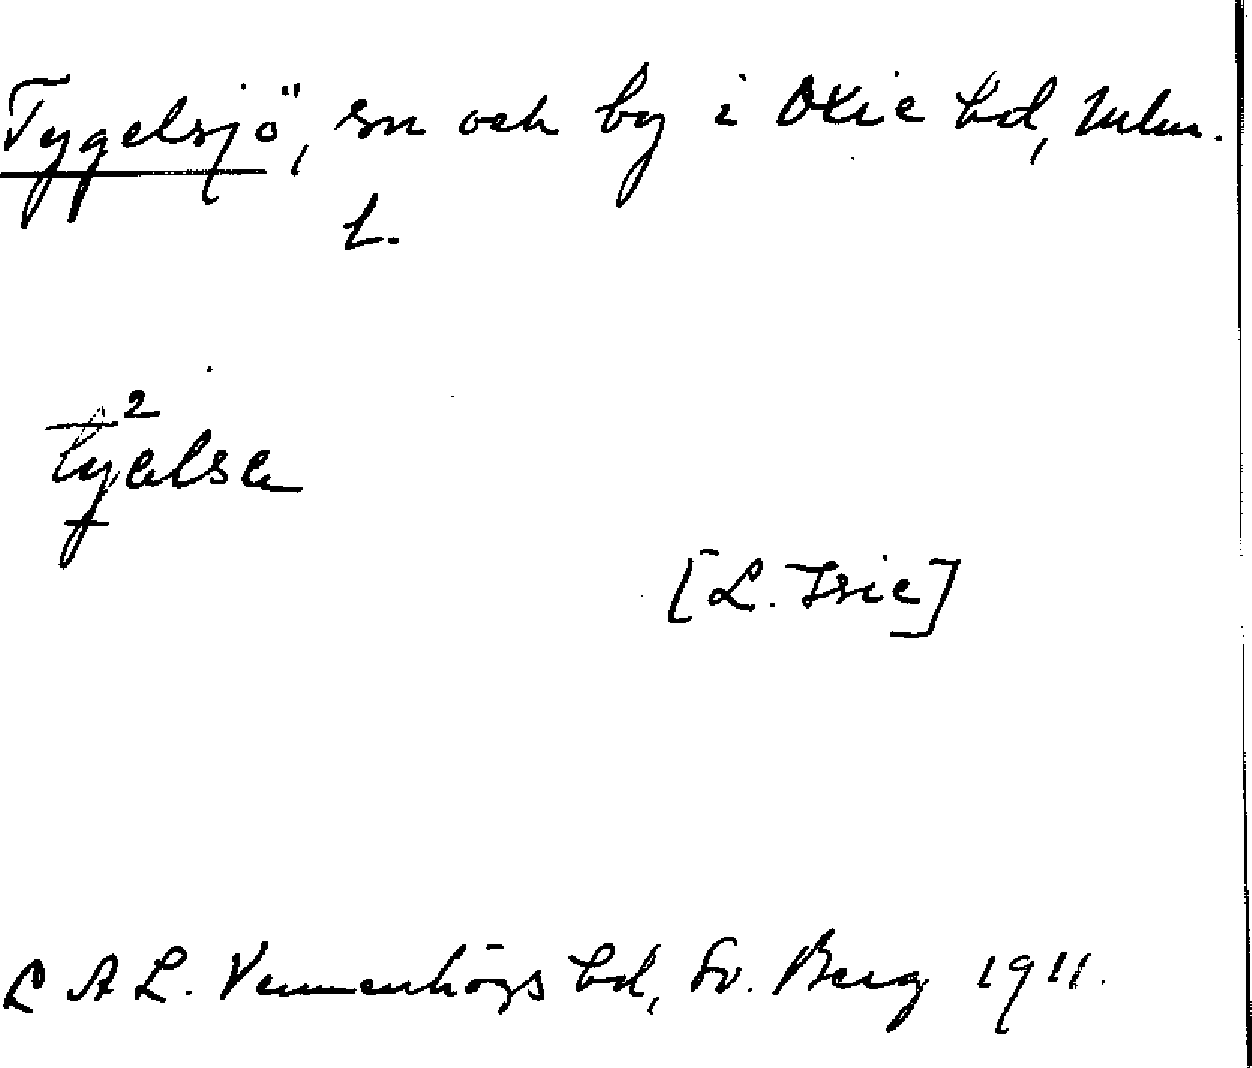 Tygelsjö, sn och by i Oxie hd, Mlm.
l.
ty²elsa
[L. Isie]
L A L. Vemmenhögs hd, Sv. Berg 1911.